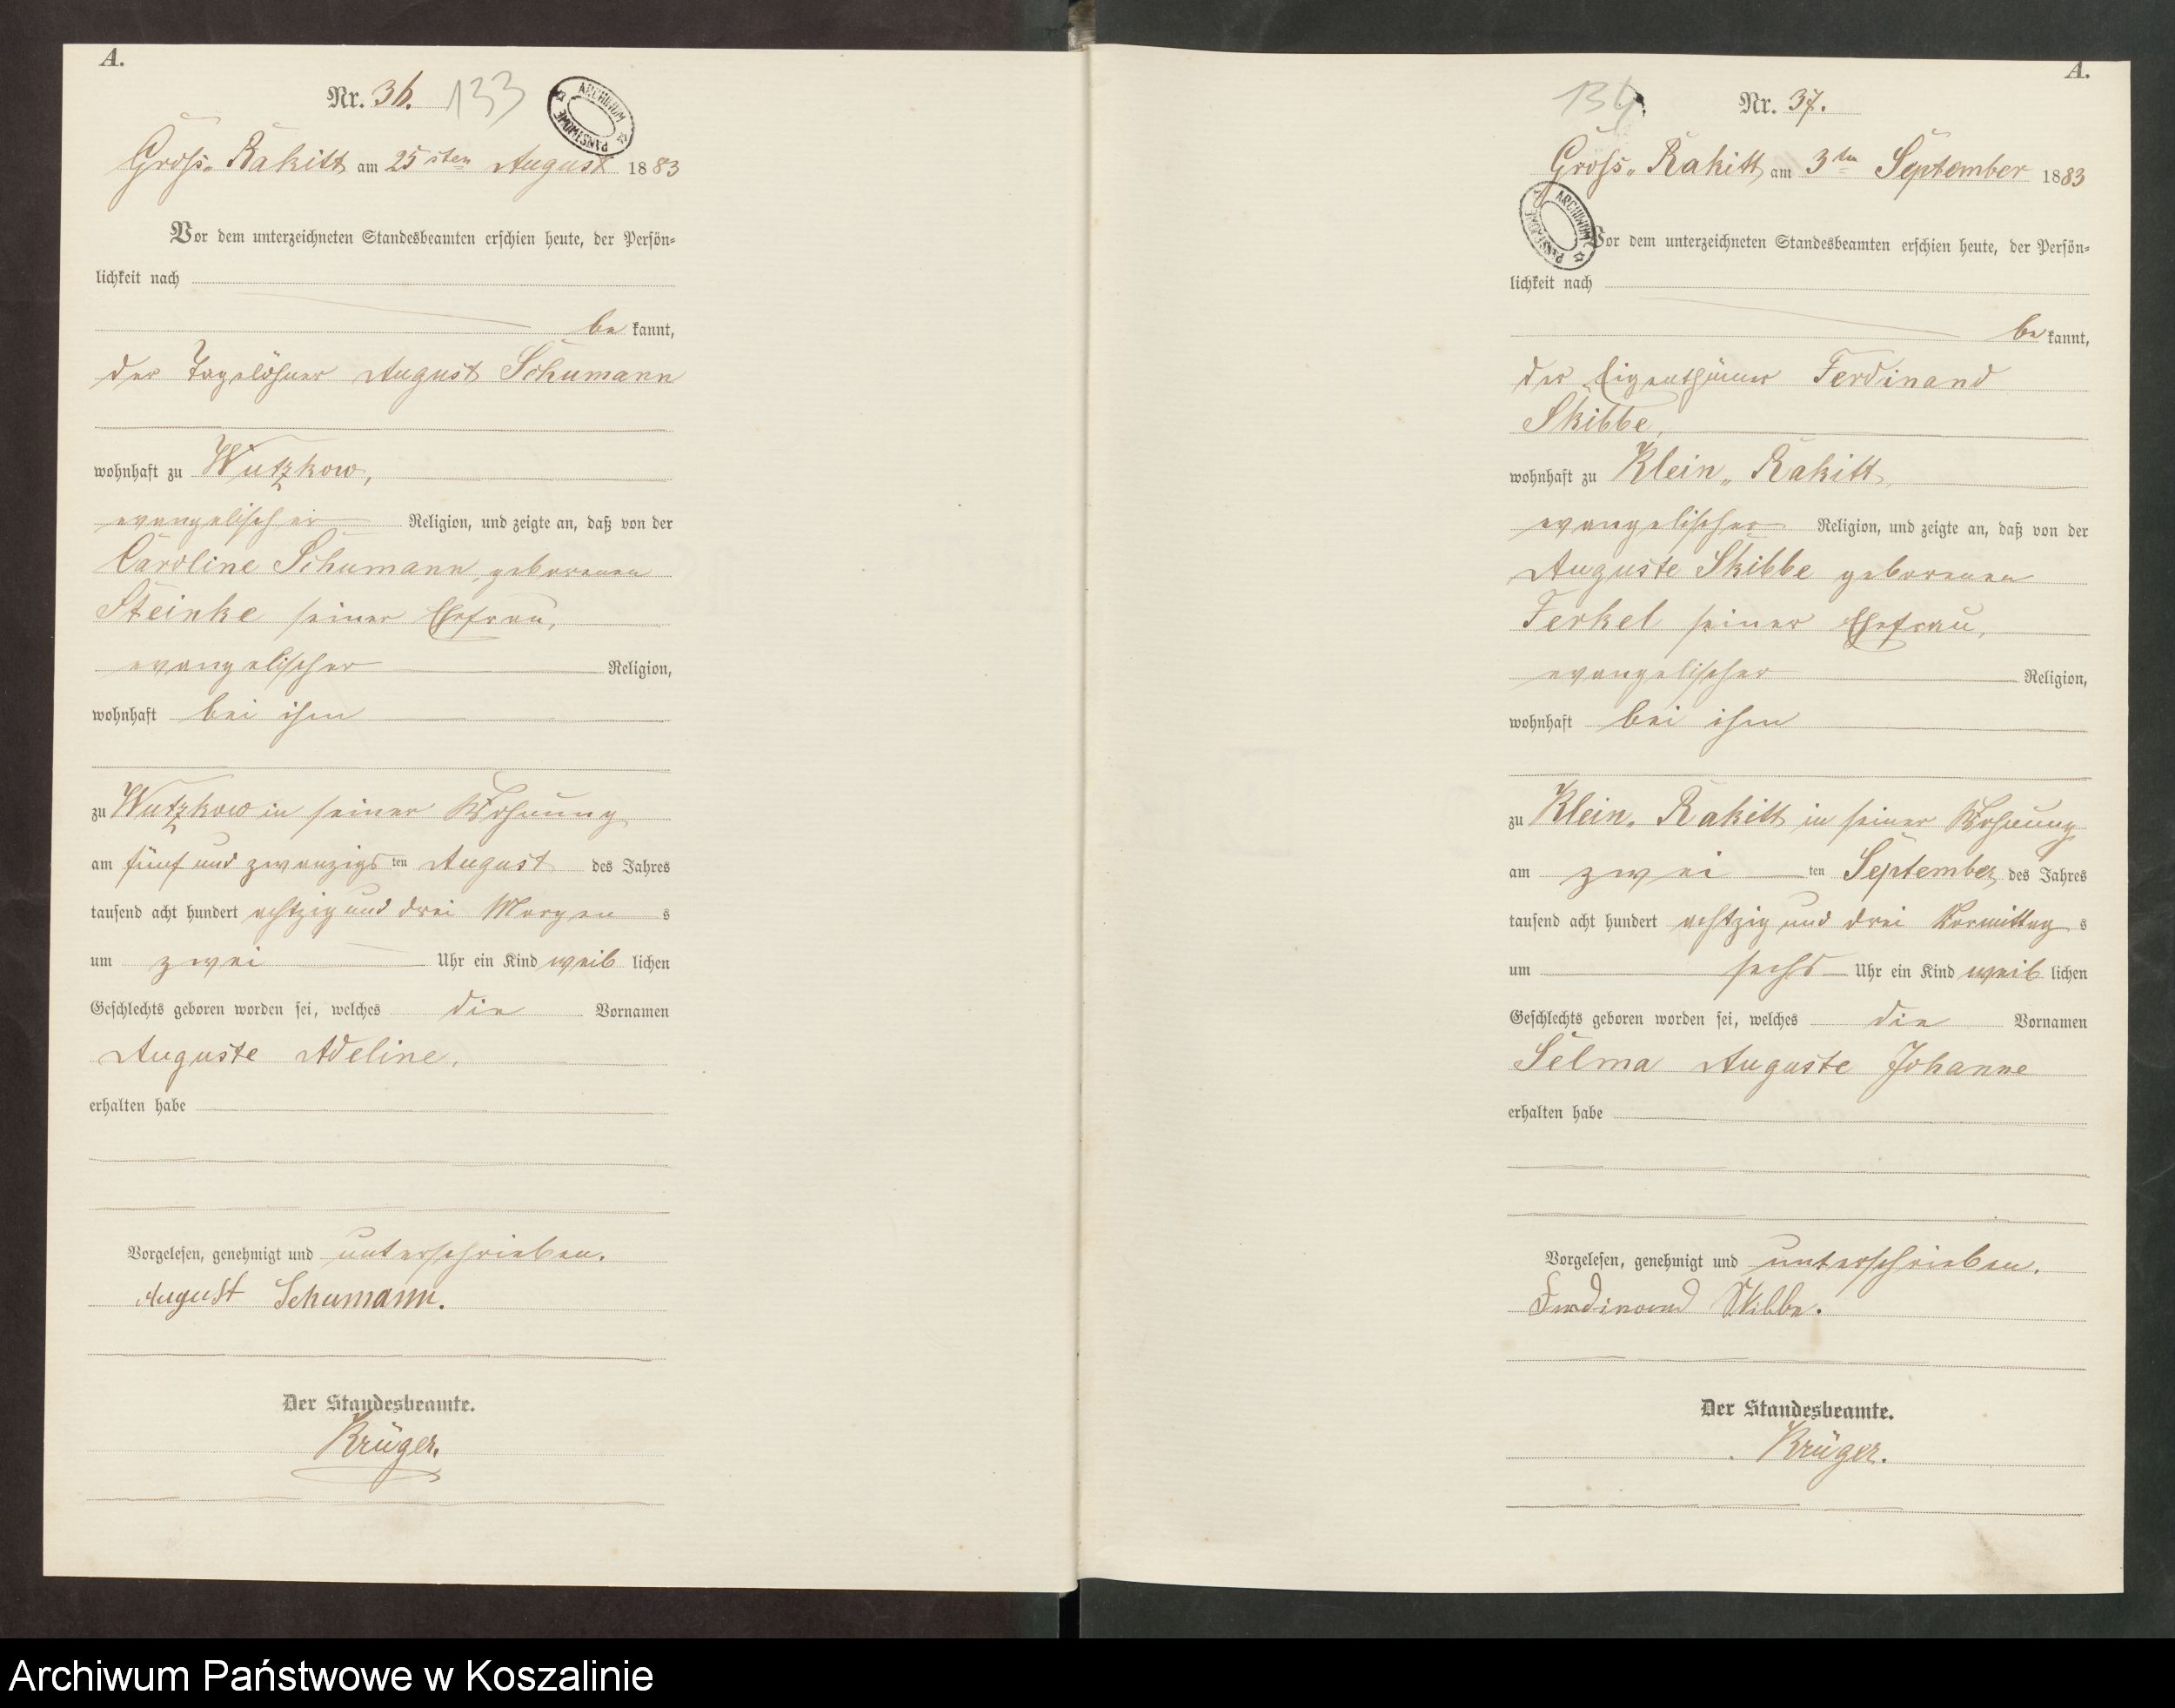 A.
Nr. 36. 133
ARCHIWUM PAŃSTWOWE
Groß-Rakitt am 25sten August 1883
Vor dem unterzeichneten Standesbeamten erschien heute, der Persön-
lichkeit nach
be kannt,
der Tagelöhner August Schumann
wohnhaft zu Wutzkow,
evangelischer Religion, und zeigte an, daß von der
Caroline Schumann, geborenen
Steinke seiner Ehefrau,
evangelischer Religion,
wohnhaft bei ihm
zu Wutzkow in seiner Wohnung
am fünf und zwanzigs ten August des Jahres
tausend acht hundert achtzig und drei Morgen s
um zwei Uhr ein Kind weib lichen
Geschlechts geboren worden sei, welches die Vornamen
Auguste Adeline,
erhalten habe
Vorgelesen, genehmigt und unterschrieben.
August Schumann.
Der Standesbeamte.
Krüger.
A.
134. Nr. 37.
Groß-Rakitt am 3ten September 1883
ARCHIWUM PAŃSTWOWE
Vor dem unterzeichneten Standesbeamten erschien heute, der Persön-
lichkeit nach
be kannt,
der Eigenthümer Ferdinand
Skibbe,
wohnhaft zu Klein-Rakitt,
evangelischer Religion, und zeigte an, daß von der
Auguste Skibbe geborenen
Ferkel seiner Ehefrau,
evangelischer Religion,
wohnhaft bei ihm
zu Klein-Rakitt in seiner Wohnung
am zwei ten September des Jahres
tausend acht hundert achtzig und drei Vormittag s
um sechs Uhr ein Kind weib lichen
Geschlechts geboren worden sei, welches die Vornamen
Selma Auguste Johanne
erhalten habe
Vorgelesen, genehmigt und unterschrieben.
Ferdinand Skibbe.
Der Standesbeamte.
Krüger.
Archiwum Państwowe w Koszalinie